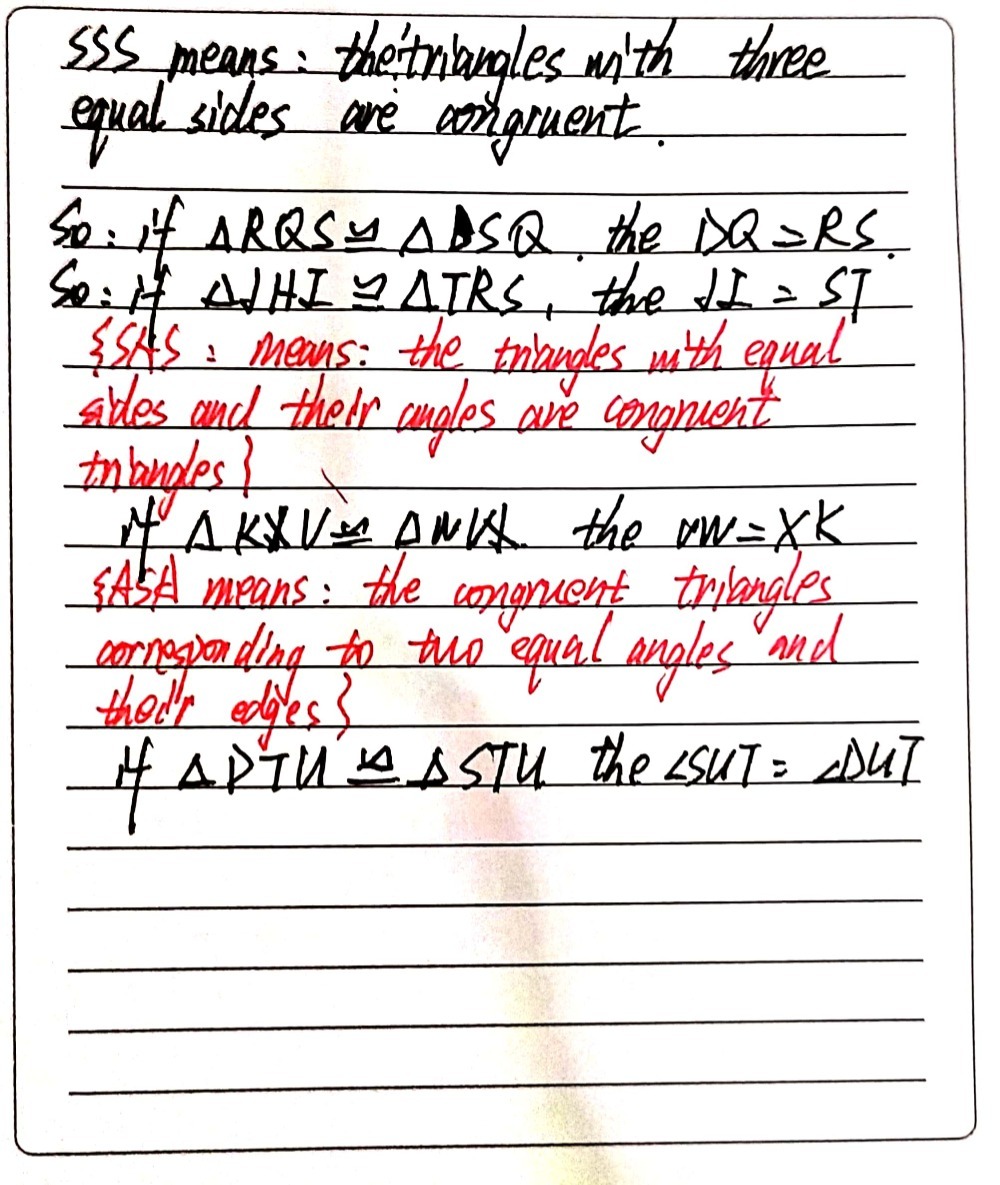 SSS means: the triangles with three
equal sides are congruent.
So: if △RQS ≌ △DSQ. the DQ = RS.
So: if △JHI ≌ △TRS, the JI = ST
{SAS: means: the triangles with equal
sides and their angles are congruent
triangles}
if △KXV ≌ △WVX. the VW = XK
{ASA means: the congruent triangles
corresponding to two equal angles and
their edges}
if △DTU ≌ △STU the ∠SUT = ∠DUT